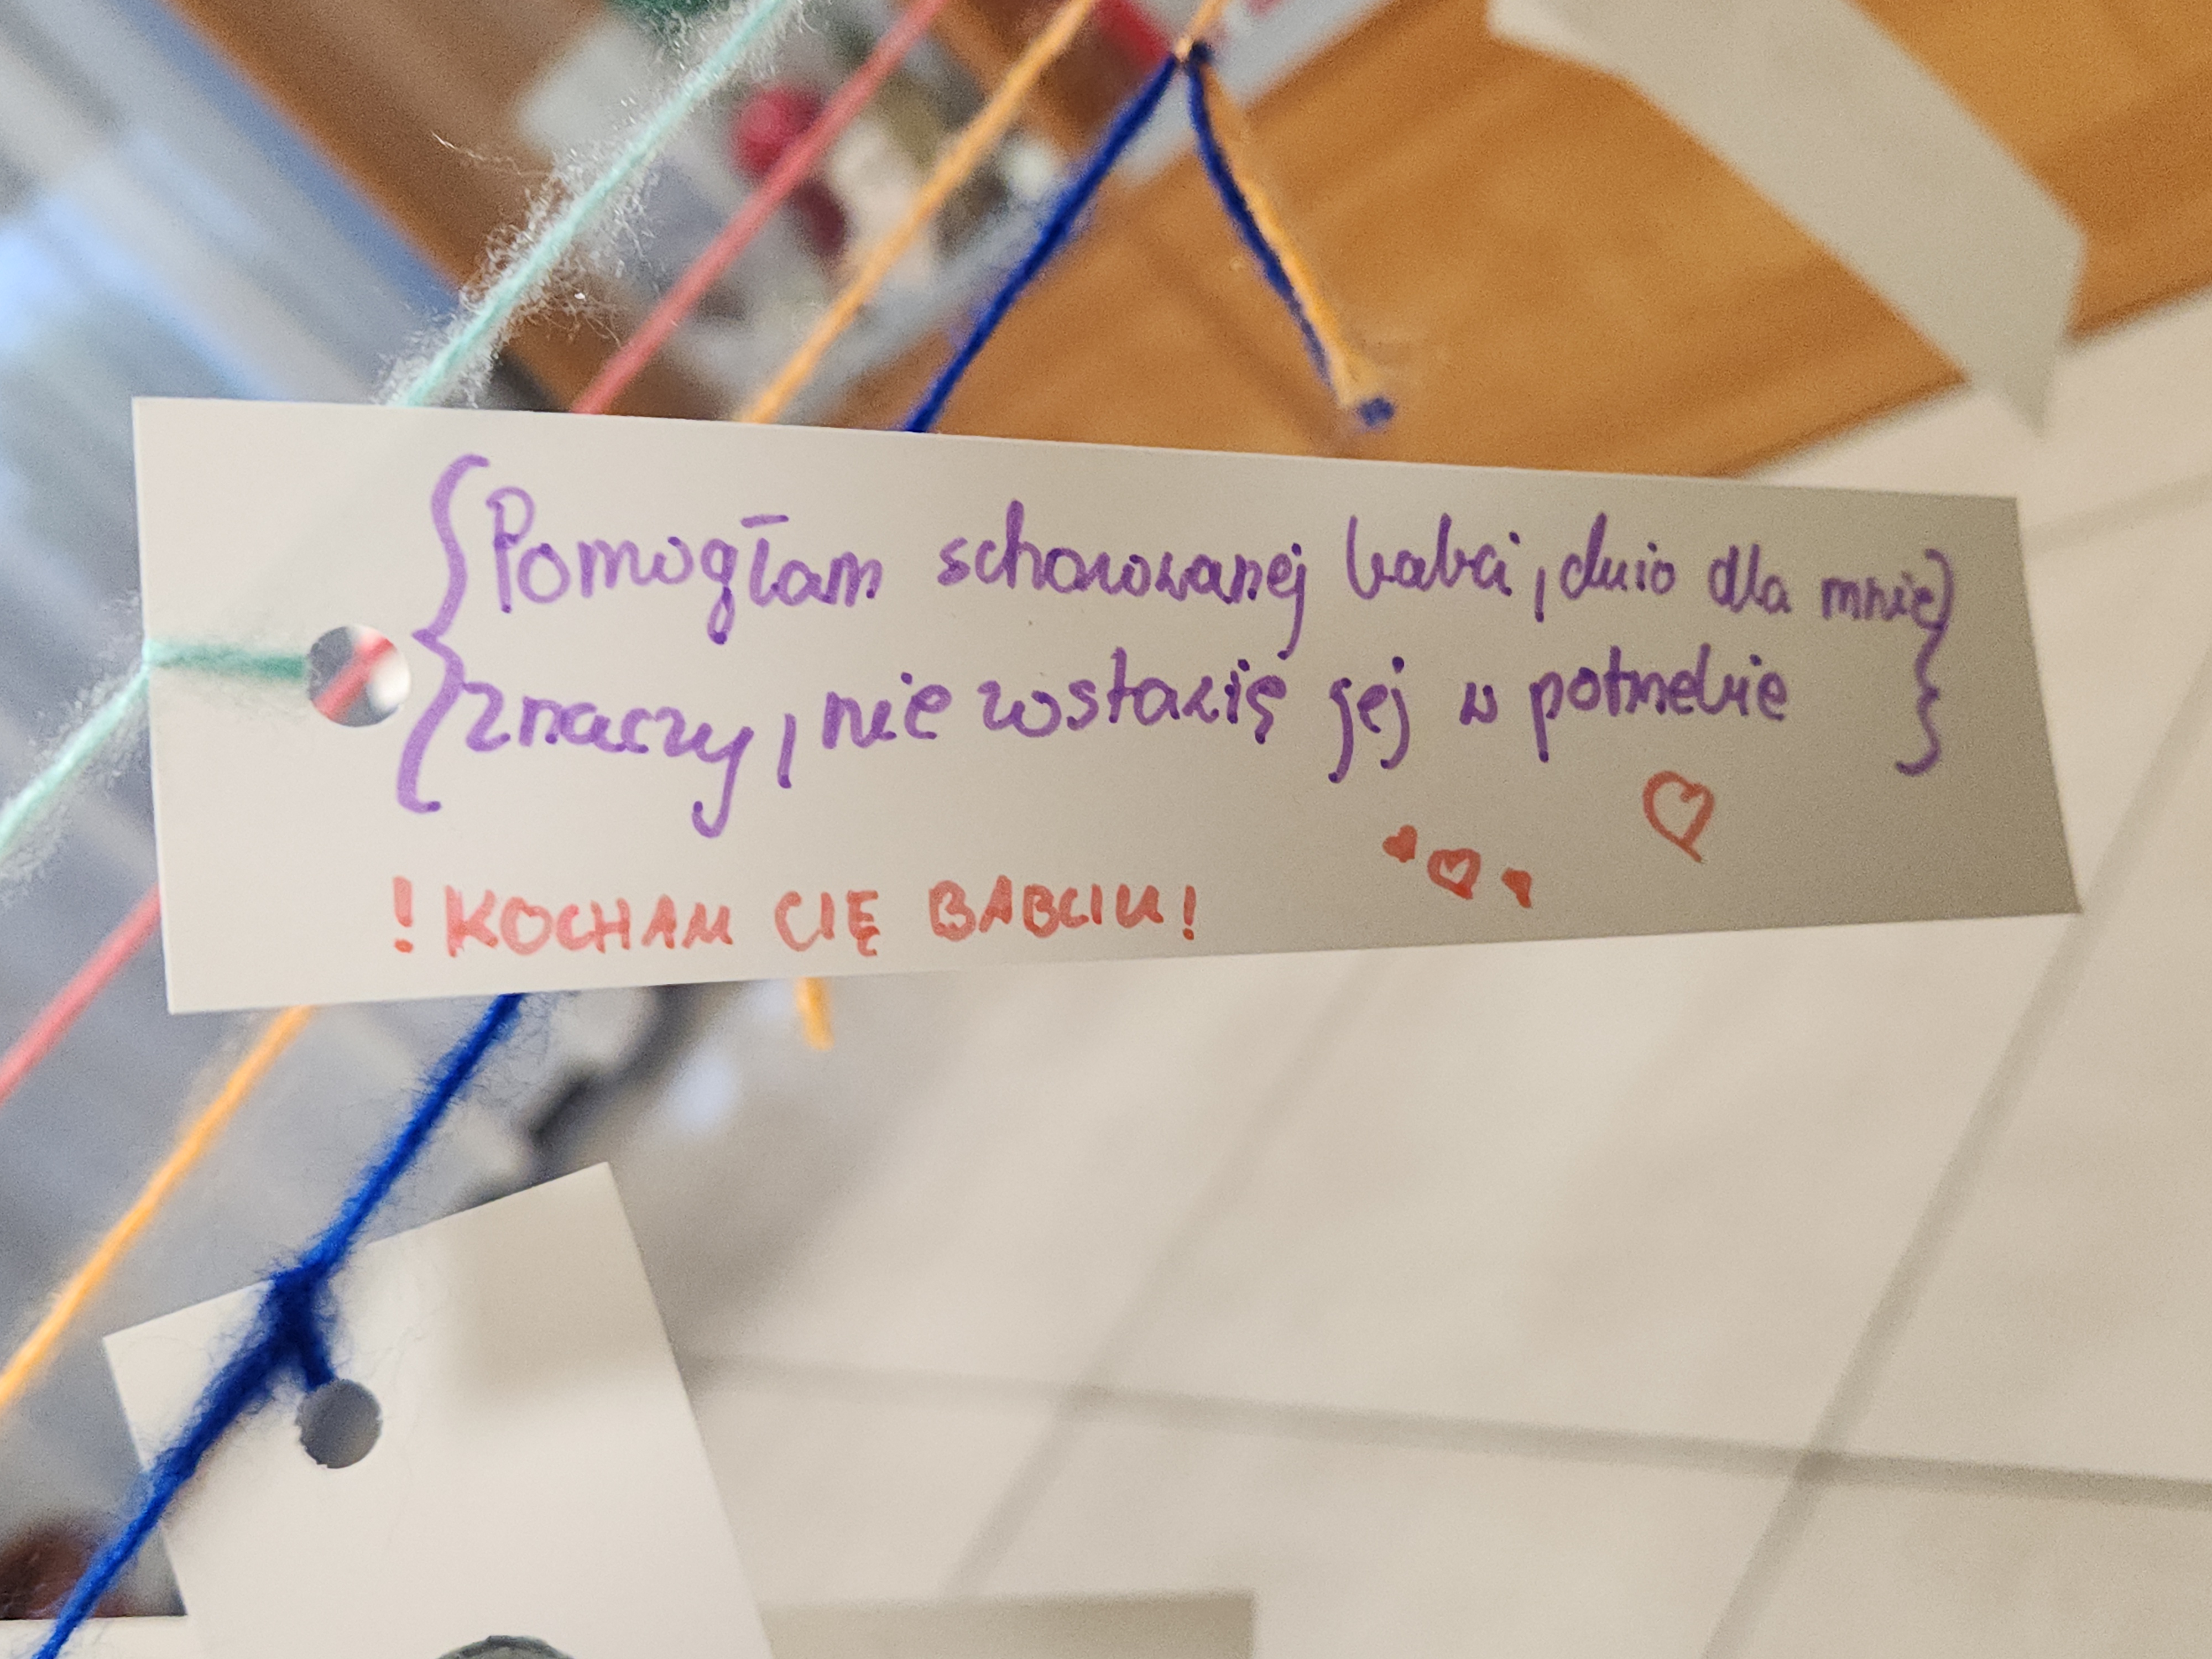 {Pomogłam schorowanej babci, dużo dla mnie}
{znaczy, nie zostawię jej w potrzebie}
! KOCHAM CIĘ BABCIU!